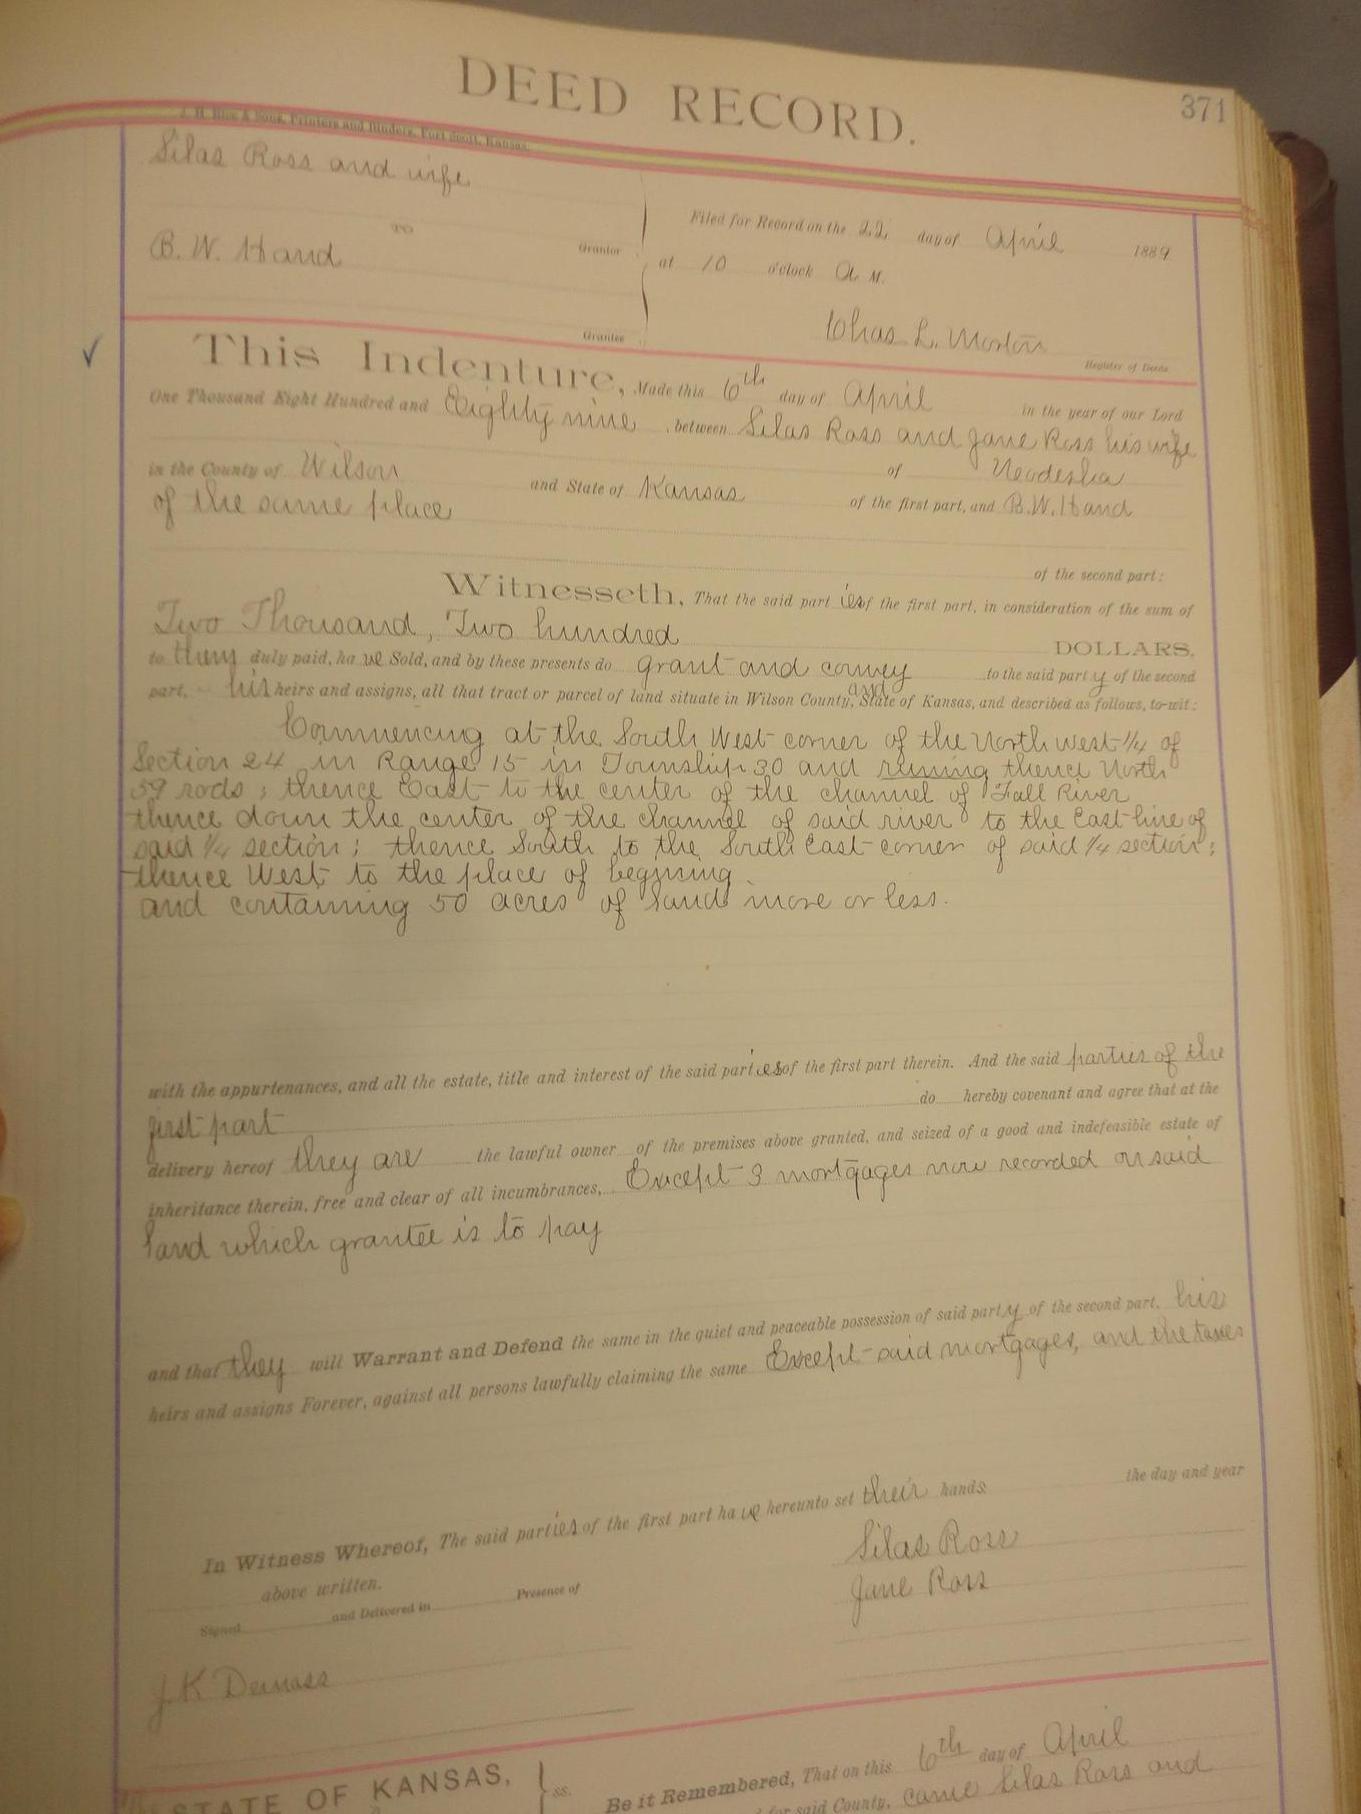 DEED RECORD.
371
J. H. Rice & Sons, Printers and Binders, Fort Scott, Kansas.
Silas Ross and wife
TO
Grantor
B. W. Hand
Grantee
Filed for Record on the 22 day of April 1889
at 10 o'clock A. M.
Chas L. Morton
Register of Deeds
This Indenture, Made this 6th day of April in the year of our Lord
One Thousand Eight Hundred and Eighty nine, between Silas Ross and Jane Ross his wife
of Neodesha
in the County of Wilson and State of Kansas of the first part, and B. W. Hand
of the same place
of the second part:
Witnesseth, That the said part ies of the first part, in consideration of the sum of
Two Thousand, Two hundred DOLLARS,
to them duly paid, ha ve Sold, and by these presents do grant and convey to the said part y of the second
part, his heirs and assigns, all that tract or parcel of land situate in Wilson County, and State of Kansas, and described as follows, to-wit:
Commencing at the South West corner of the North west 1/4 of
Section 24 in Range 15 in Township 30 and running thence North
59 rods; thence East to the center of the channel of Fall River
thence down the center of the channel of said river to the East line of
said 1/4 section; thence South to the South East corner of said 1/4 section;
thence West to the place of begnning
and containing 50 acres of land more or less.
with the appurtenances, and all the estate, title and interest of the said part ies of the first part therein. And the said parties of the
first part do hereby covenant and agree that at the
delivery hereof they are the lawful owner of the premises above granted, and seized of a good and indefeasible estate of
inheritance therein, free and clear of all incumbrances, Except 3 mortgages now recorded on said
land which grantee is to pay
and that they will Warrant and Defend the same in the quiet and peaceable possession of said part y of the second part, his
heirs and assigns Forever, against all persons lawfully claiming the same Except said mortgages, and the taxes
In Witness Whereof, The said parties of the first part ha ve hereunto set their hands the day and year
above written.
Signed and Delivered in Presence of
Silas Ross
Jane Ross
J. K. Demoss
STATE OF KANSAS, ss.
Be it Remembered, That on this 6th day of April
for said County, came Silas Ross and